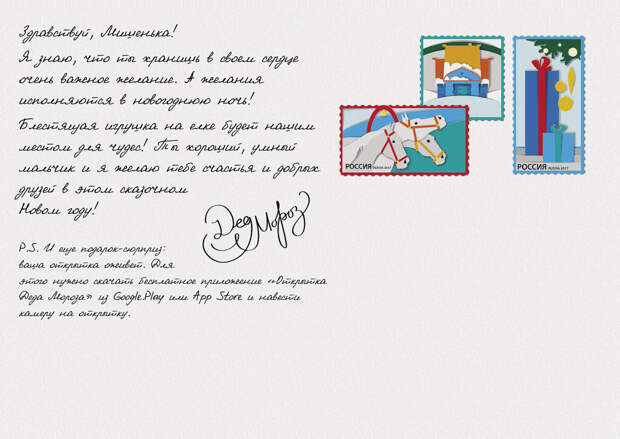 Здравствуй, Мишенька!
Я знаю, что ты хранишь в своем сердце
очень важное желание. А желания
исполняются в новогоднюю ночь!
Блестящая игрушка на елке будет нашим
местом для чудес! Ты хороший, умный
мальчик и я желаю тебе счастья и добрых
друзей в этом сказочном
Новом году!
Дед Мороз
P.S. И еще подарок-сюрприз:
ваша открытка оживет. Для
этого нужно скачать бесплатное приложение «Открытка
Деда Мороза» из GooglePlay или App Store и навести
камеру на открытку.
РОССИЯ RUSSIA 2017
РОССИЯ RUSSIA 2017